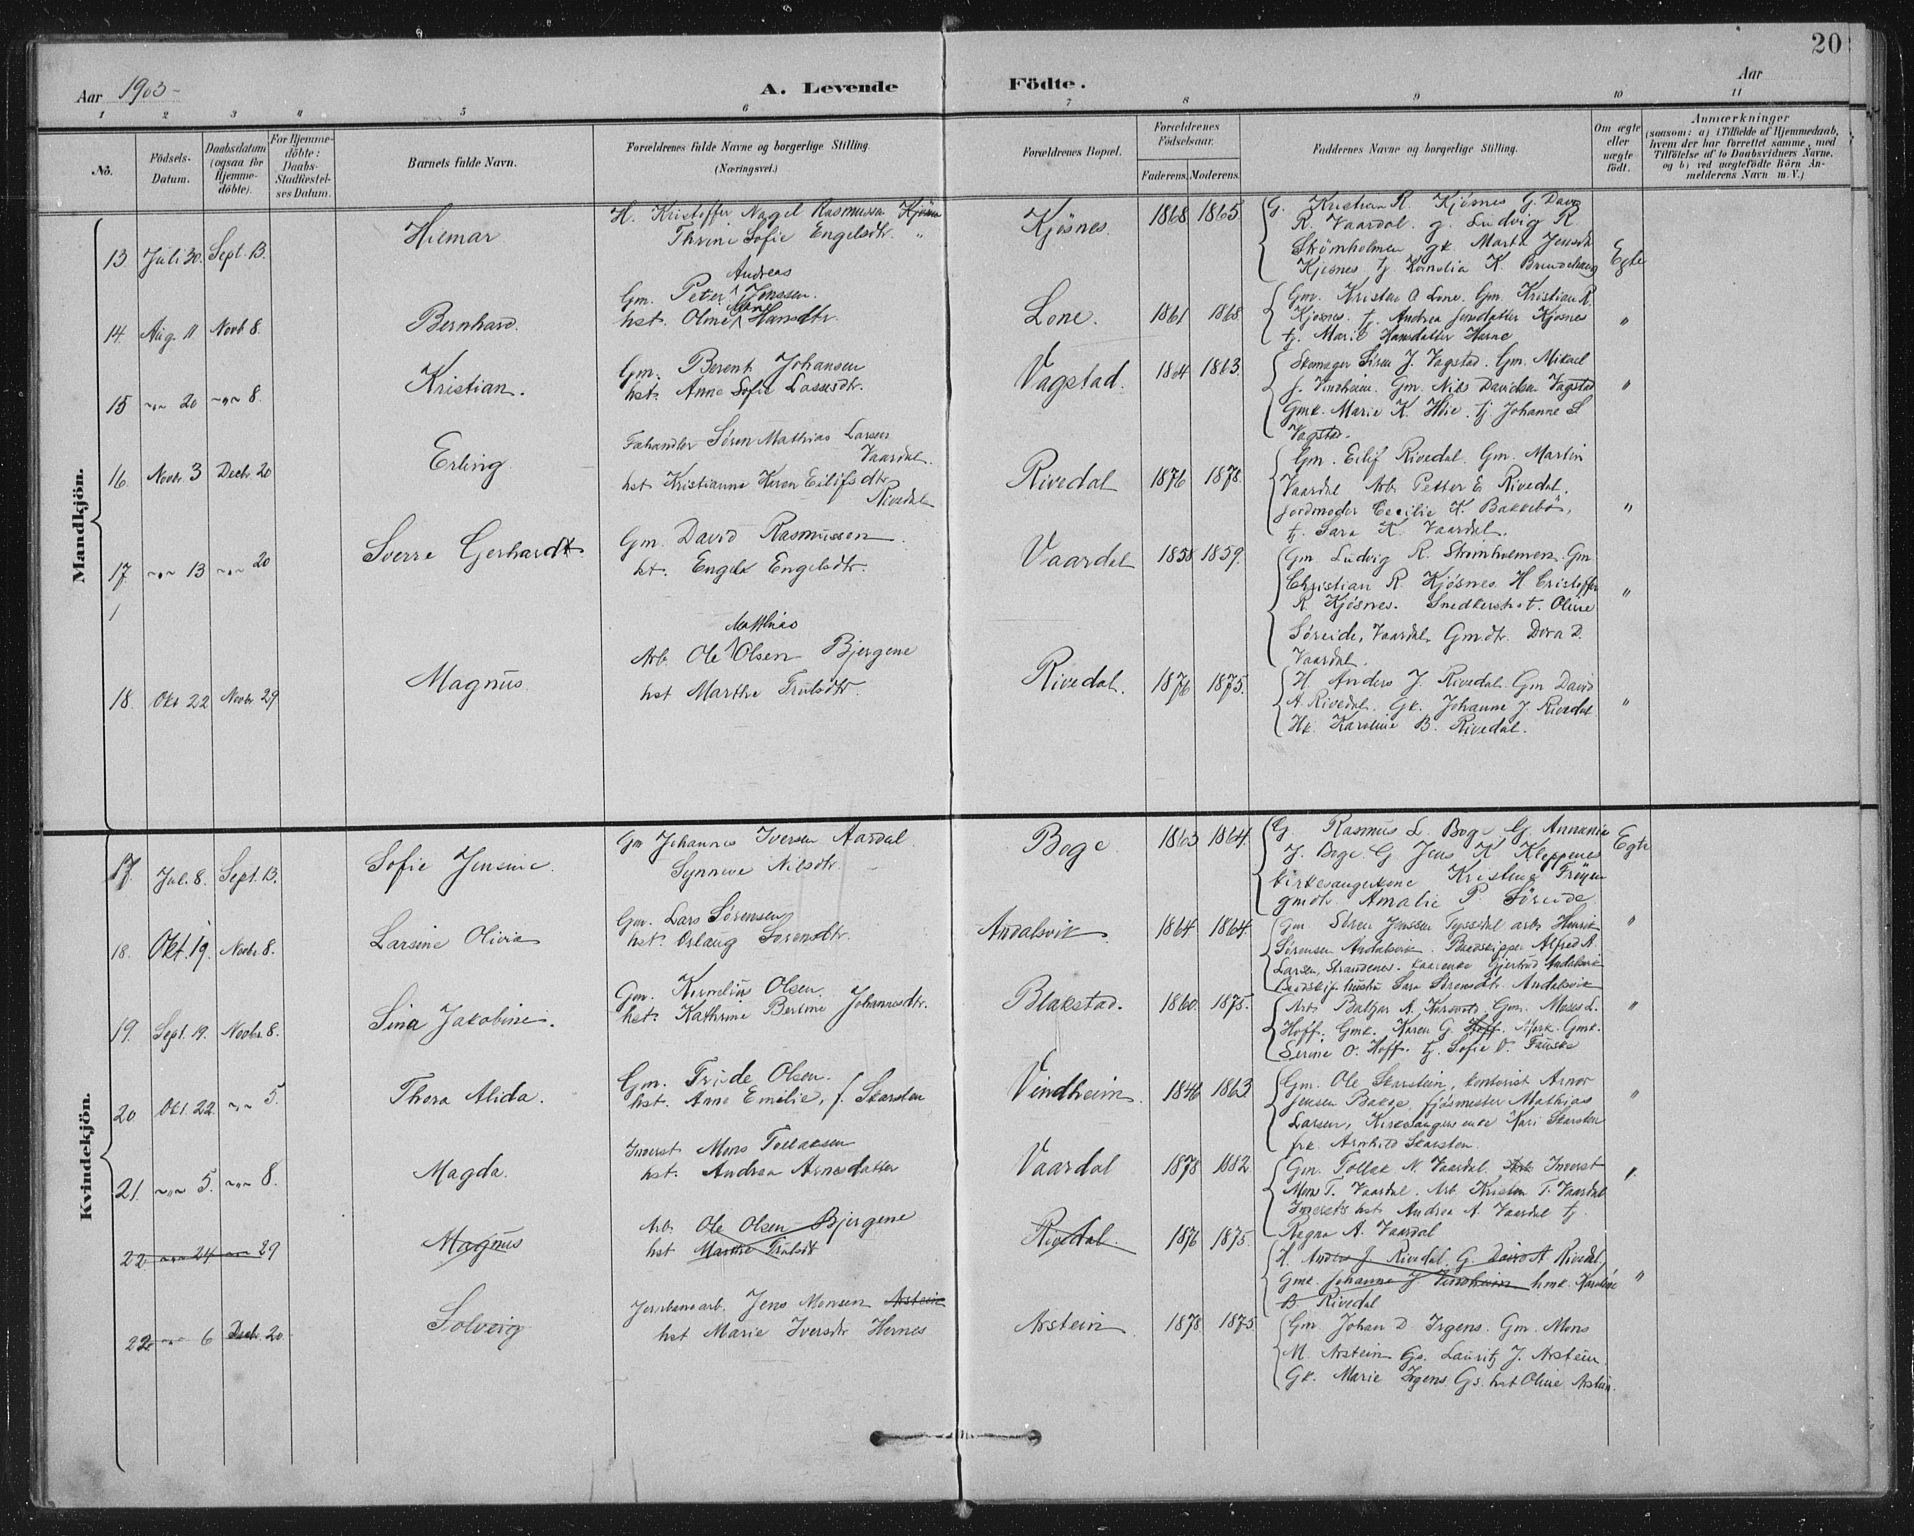 20
Aar 1903-
A. Levende Födte.
Aar
1 2 3 4 5 6 7 8 9 10 11
No.
Födsels-Datum.
Daabsdatum (ogsaa for Hjemme-döbte).
For Hjemme-döbte: Daabs-Stadfæstel-ses Datum.
Barnets fulde Navn.
Forældrenes fulde Navne og borgerlige Stilling. (Næringsvei.)
Forældrenes Bopæl.
Forældrenes Födselsaar.
Faderens. Moderens.
Faddernes Navne og borgerlige Stilling.
Om ægte eller uægte födt.
Anmærkninger
(saasom: a) i Tilfælde af Hjemmedaab, hvem der har forrettet samme, med Tilföielse af to Daabsvidners Navne, og b) ved uegtefödte Börn An-melderens Navn m. V.)
Mandkjön.
13 Juli 30. Sept. 13. Hilmar
H. Kristoffer Nagel Rasmussen Kjøsnes
Thrine Sofie Engelsdtr. "
Kjøsnes. 1868 1865
G. Kristian R. Kjøsnes G. David
R. Vaardal. g. Ludvig R
Strømholmen gk. Marta Jensdt
Kjøsnes tj Kornelia K.
Egte
14. Aug. 11 Novb 8. Bernhard.
Andreas
Gm. Peter Jonssen.
hst. Oline Hansdtr.
Lone. 1861 1868
Gm. Kristen O Lone. Gm. Kristian R.
Kjøsnes. tj. Andrea Jensdatter Kjøsnes
tj. Marie Hansdatter
"
15 -"- 20 -"- 8. Kristian.
Gm. Berent Johansen
hst. Anne Sofie Lassesdtr.
Vagstad. 1863.
Skomager Siren J. Vagstad. Gm. Mikael
J. Vindheim. Gm. Nils Davidsen Vagstad
Gmk. Marie K. Hlie. tj. Johanne S
Vagstad.
"
16. Novbr 3 Decbr 20 Erling.
Fæhandler Søren Mathias Larsen
Vaardal.
hst Kristianne Karen Eilifsdtr.
Rivedal
Rivedal 1876 1878.
Gm. Eilif Rivedal. Gm. Martin
Vaardal Arb. Petter E Rivedal.
Jordmoder Cecilie K. Bakkebø,
tj. Sara K. Vaardal.
"
17. -"- 13 -"- 20 Sverre Gerhardt
Gm. David Rasmussen.
hst. Engela Engelsdtr.
Vaardal 1858 1859.
Gm. Ludvig R. Strømholmen. Gm
Christian R. Kjøsnes. H. Cristoffer
R. Kjøsnes. Oline
Søreide, Vaardal. Gmdtr. Dora D.
Vaardal.
"
18. Okt 22 Novbr 29 Magnus.
Mathias
Arb. Ole Olsen Bjergene
hst Marthe Trulsdtr.
Rivedal. 1876 1875.
H. Anders J. Rivedal. Gm David
A. Rivedal. Gk. Johanne J. Rivedal
Hk. Karoline B. Rivedal.
"
Kvindekjön.
17. Jul. 8. Sept. 13. Sofie Jensine.
Gm Johannes Iversen Aardal
Synneve Nilsdtr.
Boge 1863 1864.
G. Rasmus L. Boge. G. Annanie
J. Boge. G Jens K Kleppenes
kirkesangerkone Kristine Frøyen
gmdtr. Amalie P. Søreide
Egte
18. Okt. 19. Novbr 8. Larsine Olivia
Gm. Lars Sørensen
hst. Oslaug Sørensdtr.
Andalsvik 1864 1864.
Gm Søren Jenssen Tyssedal arb. Henrik
Sørensen Andalsvik. Alfred A.
Larsen, Strandenes. Gjertrud Andalsvik
Sara Sørensdtr. Andalsvik
"
19. Sept. 19. Novbr 8. Sina Jakobine.
Gm. Kornelius Olsen.
hst. Kathrine Bertine Johannesdtr.
Blakstad. 1860. 1875.
Arb Baltzar A. Gm. Moses L.
Hoff. Gmk. Karen G. Hoff. Gmk.
Serine O. Hoff. tj. Sofie O. Fauske
"
20. Okt 22 -"- 5. Thora Alida.
Gm. Fride Olsen.
hst. Anne Emelie, f. Skarsten
Vindheim. 1846 1863
Gm. Ole Skarstein, kontorist Arnor
Jensen Bakke, fjøsmester Mathias
Larsen, Kari Skarsten
frk. Arnhild Skarsten.
"
21. -"- 5. -"- 8. Magda.
Inderst Mons Tollaksen
hst. Andrea Arnesdatter
Vaardal 1878 1882.
Gm. Tollak N. Vaardal. Inderst
Mons T. Vaardal. Arb. Kristen T. Vaardal
Inderst's hst Andrea A. Vaardal tj.
Ragna A. Vaardal
"
22 -"- 24 -"- 29 Magnus
Arb Ole Olsen Bjergene
hst Marthe Trulsdt
Rivedal 1876 1875.
H. Anders J Rivedal. G. David A. Rivedal,
Gmk. Johanne J Vindheim hmk. Karoline
B. Rivedal
"
22 -"- 6 Decbr. 20 Solveig
Jernbanearb. Jens Monsen Arstein
hst Marie Iversdtr Hernes
Arstein 1878 1875
Gm. Johan D. Irgens. Gm. Mons
M. Arstein Gs. Lauritz J. Arstein
Gk. Marie Irgens Gs. hst Oline Arstein.